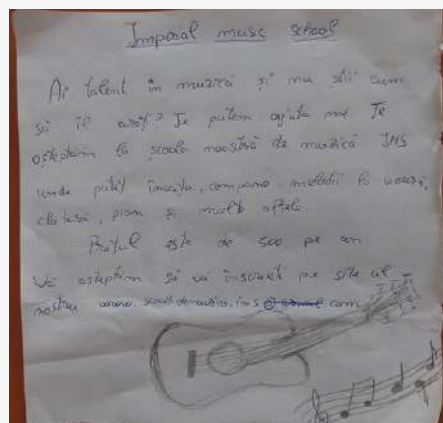 Imperial musc school
Ai talent în muzică și nu știi cum
să îl arăți? Te putem ajuta noi Te
așteptăm la școala noastră de muzică IMS
unde poți învăța, compune melodii la vioară,
chitară, pian și multe altele.
Prețul este de 500 pe an
Vă așteptăm să vă înscrieți pe site ul
nostru www. scoalademuzica.ims com